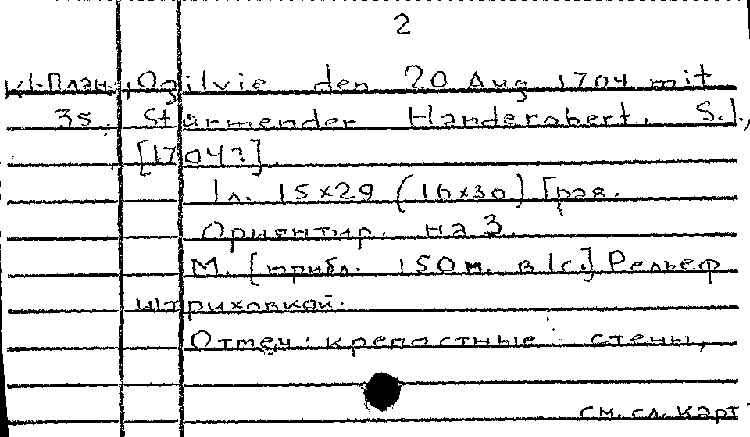 2
К1-План, Ogilvie den 20 Aug 1704 mit
3s. Stürmender Handerobert. S.l.,
[1704?].
1 л. 15×29 (16×30) Грав.
Ориентир. на З.
М. [прибл. 150 м. в 1с.] Рельеф
штриховкой.
Отмеч: крепостные стены,
см. сл. карт